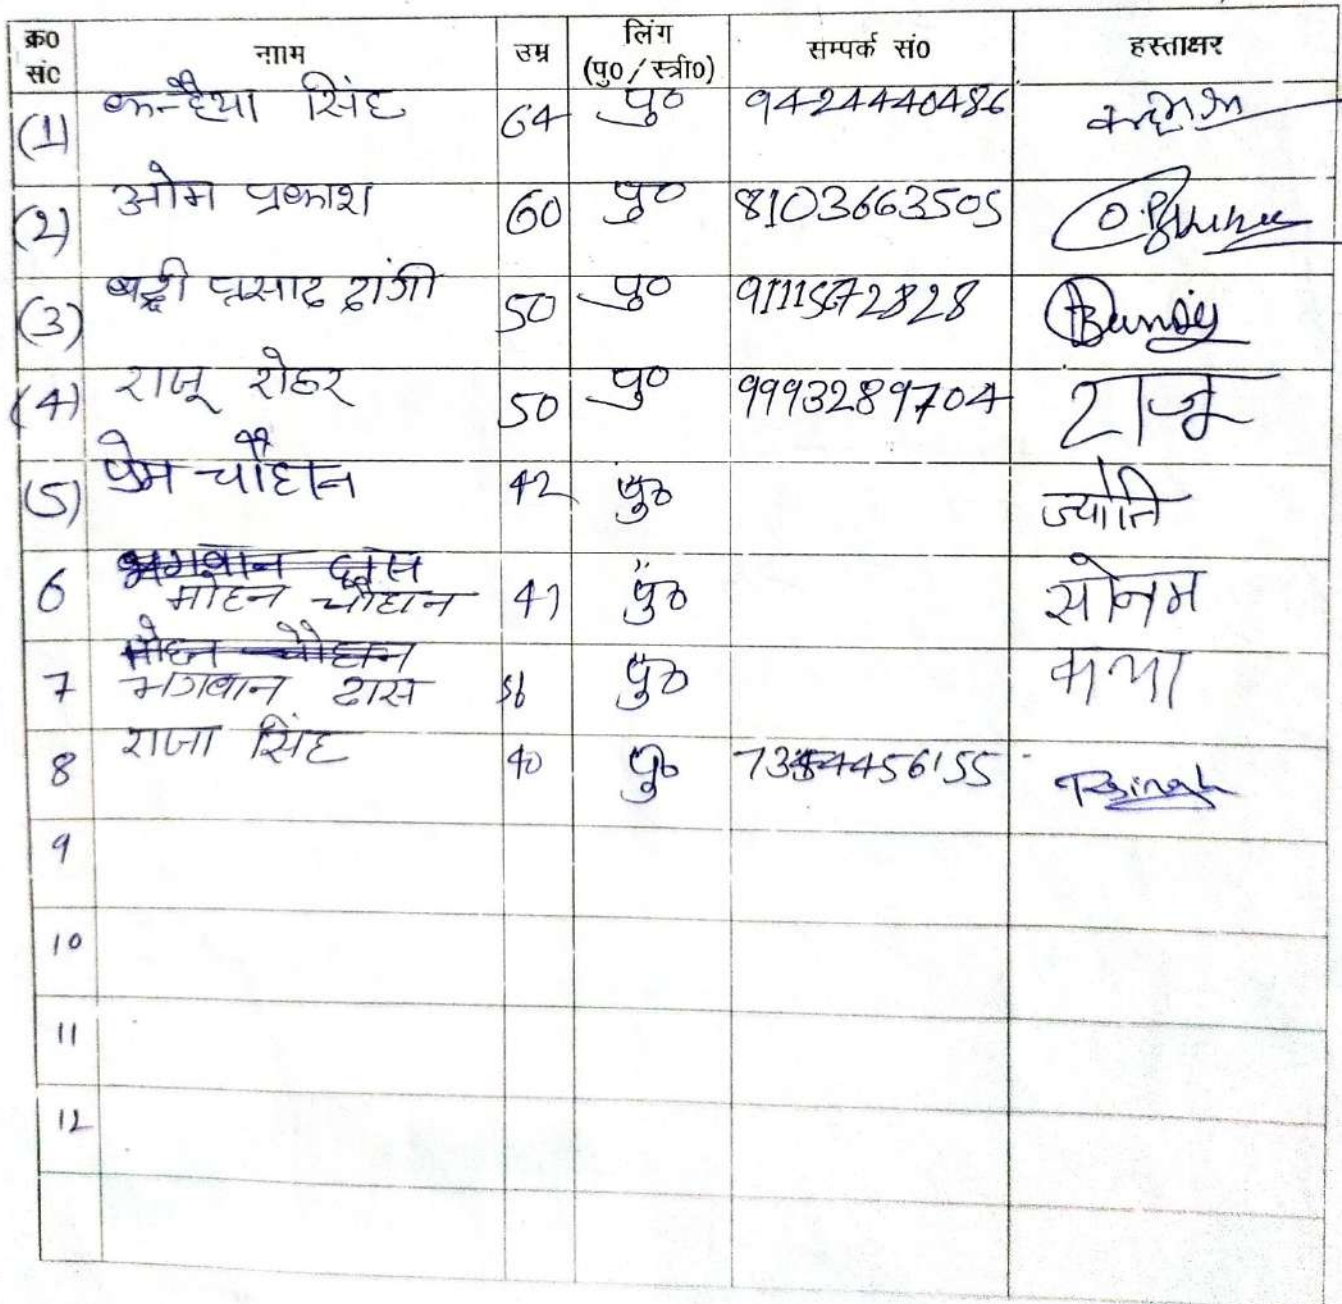 क्र0 सं0 नााम उम्र लिंग (पु0/स्त्री0) सम्पर्क सं0 हस्ताक्षर
(1) कन्हैया सिंह 64 पु० 9424440486
(2) ओम प्रकाश 60 पु० 8103663505
(3) बद्री प्रसाद दांगी 50 पु० 9111572828
(4) राजू रोहर 50 पु० 9993289704 राजू
(5) प्रेम चौहान 42 पु० ज्योति
भगवान दास
6 मोहन चौहान 41 पु० सोनम
मोहन चौहान
7 भगवान दास 56 पु०
8 राजा सिंह 40 पु० 7354456155 RSingh
9
10
11
12